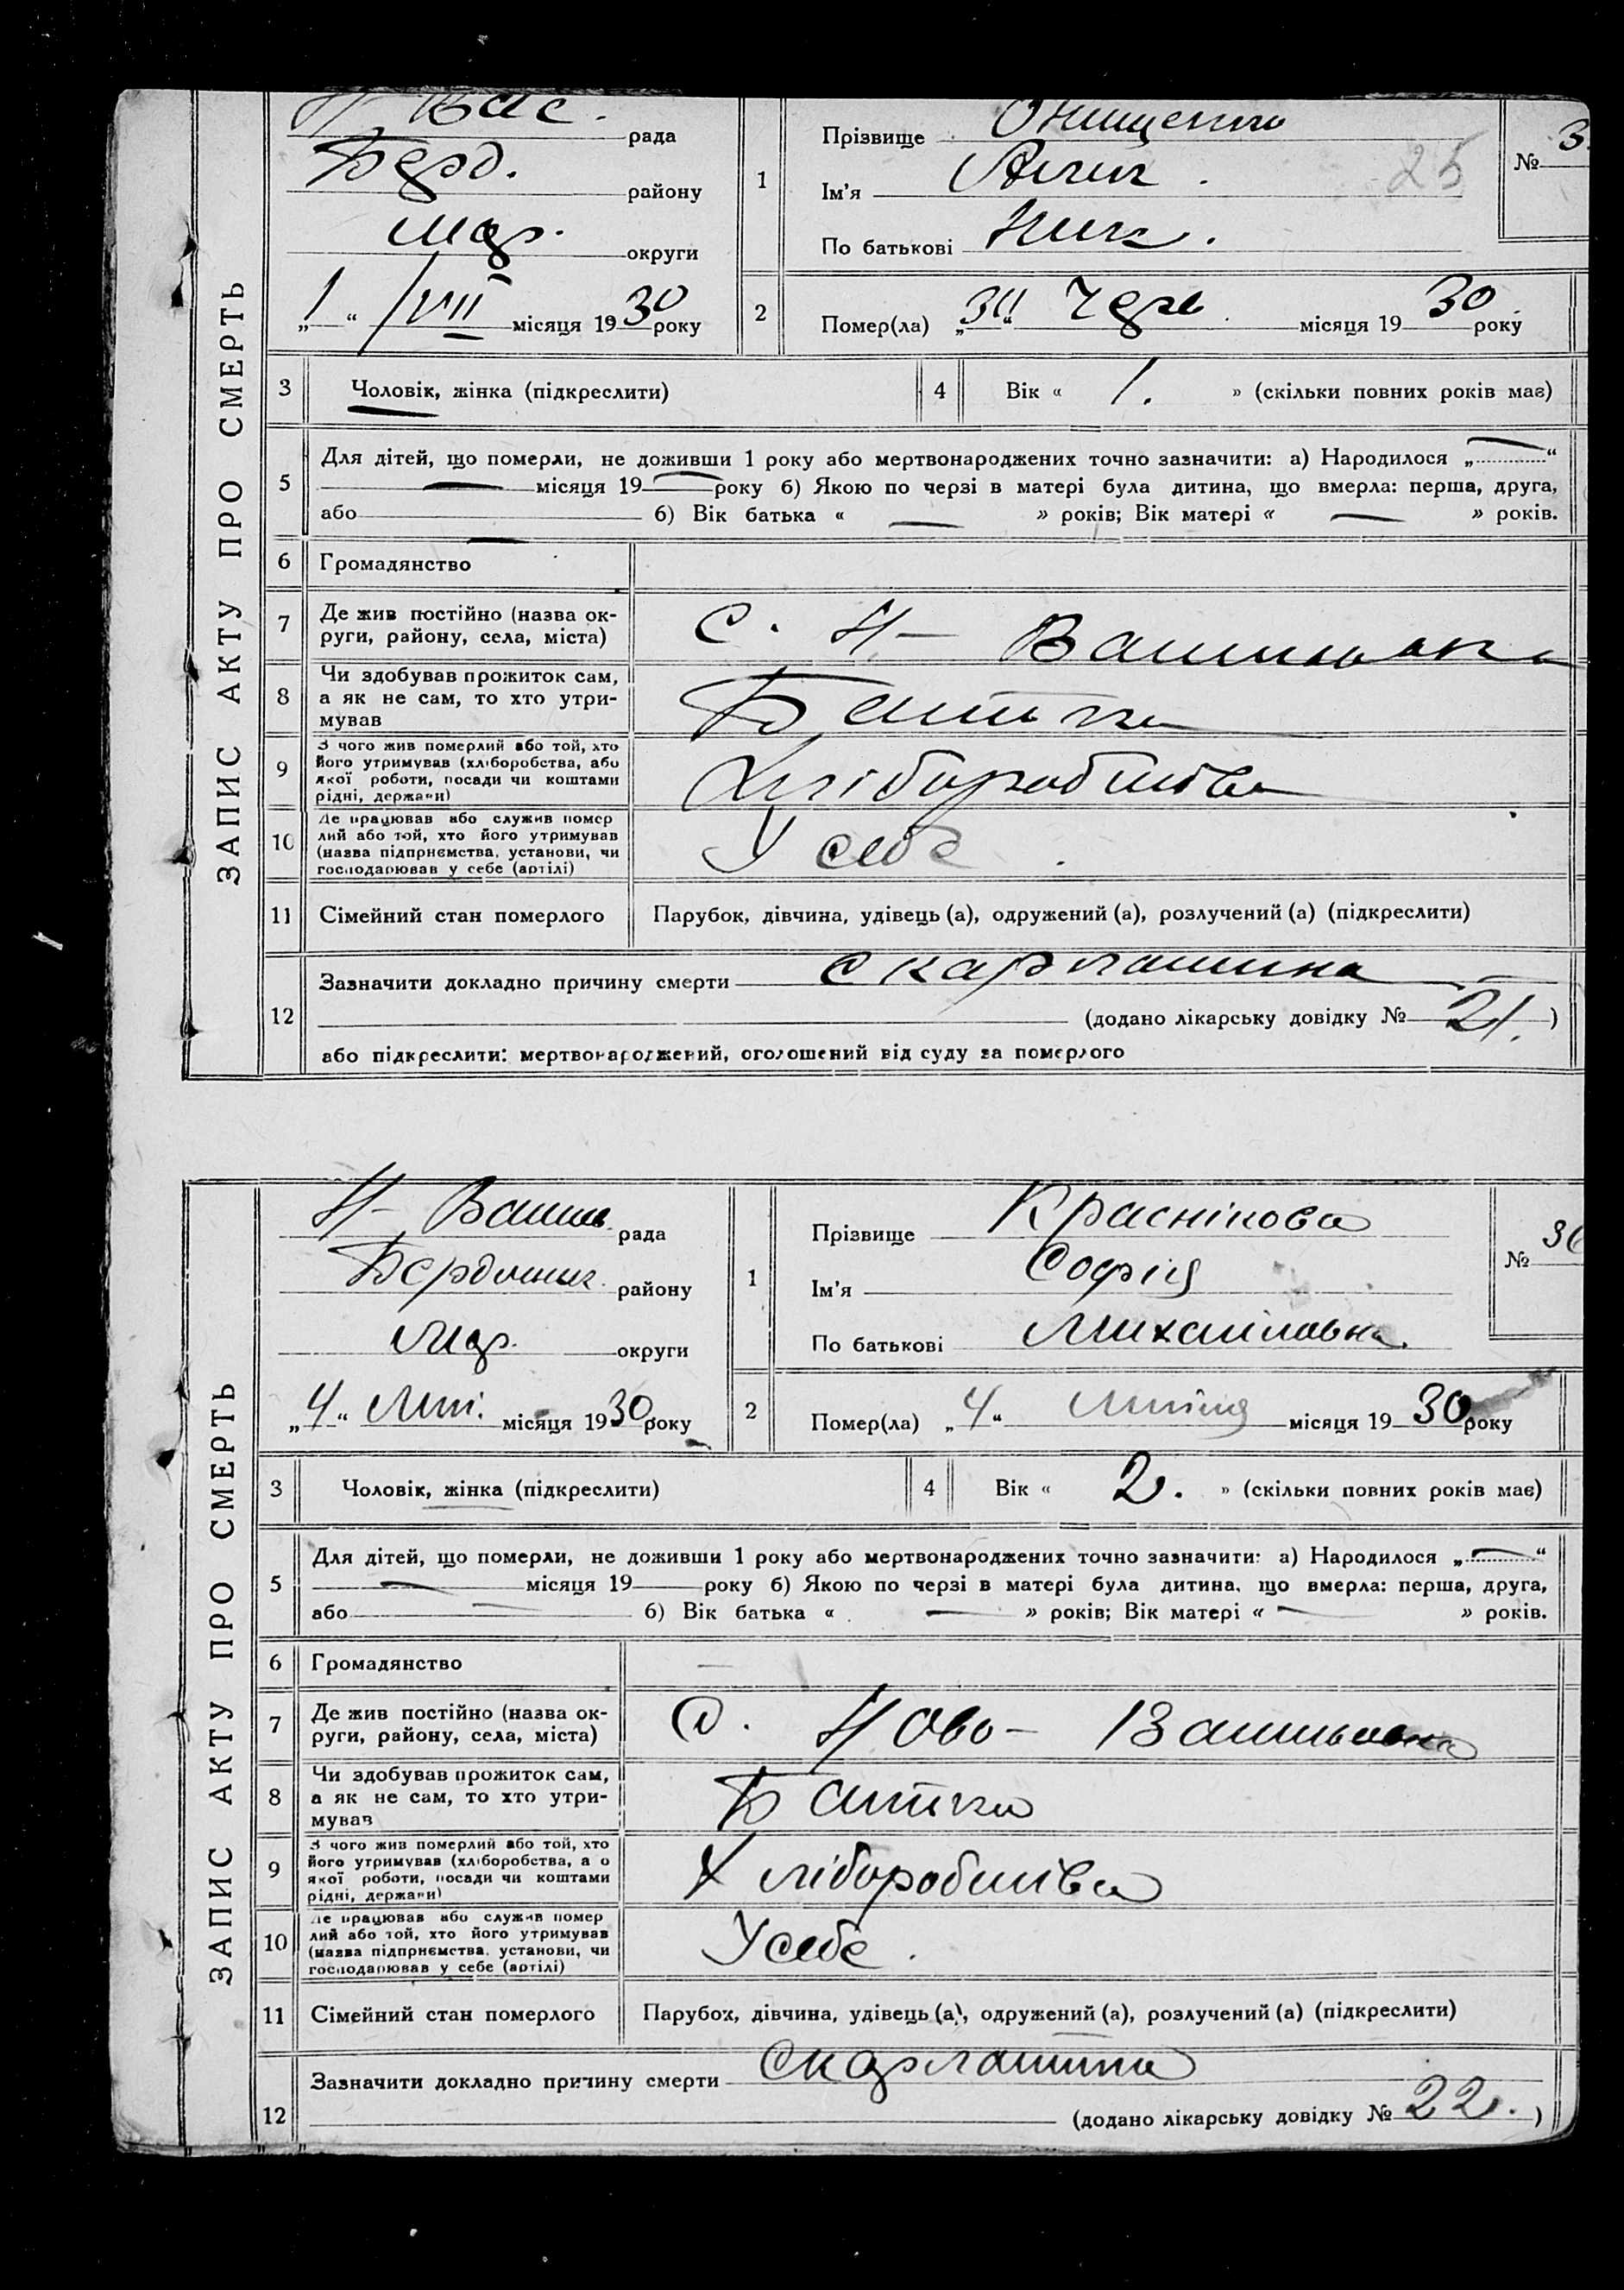 ЗАПИС АКТУ ПРО СМЕРТЬ
Н. Вас. рада
Берд. району
Мар. округи
„1“ /VII місяця 1930 року
1
Прізвище Онищенко
Ім'я
25
По батькові Ник.
№ 3
2
Помер(ла) „30“ Черв. місяця 1930 року
3 Чоловік, жінка (підкреслити)
4 Вік « 1. » (скільки повних років має)
5 Для дітей, що померли, не доживши 1 року або мертвонароджених точно зазначити: а) Народилося „—“
— місяця 19— року б) Якою по черзі в матері була дитина, що вмерла: перша, друга,
або б) Вік батька « — » років; Вік матері « — » років.
6 Громадянство
7 Де жив постійно (назва ок-
руги, району, села, міста)
с. Н-
8 Чи здобував прожиток сам,
а як не сам, то хто утри-
мував
Батько
9 З чого жив померлий або той, хто
його утримував (хліборобства, або
якої роботи, посади чи коштами
рідні, держави)
Хліборобство
10 Де працював або служив помер
лий або той, хто його утримував
(назва підприємства, установи, чи
господарював у себе (артілі)
У себе
11 Сімейний стан померлого Парубок, дівчина, удівець (а), одружений (а), розлучений (а) (підкреслити)
12 Зазначити докладно причину смерти Скарлатина
(додано лікарську довідку № 21. )
або підкреслити: мертвонароджений, оголошений від суду за померлого
ЗАПИС АКТУ ПРО СМЕРТЬ
Н- Васил. рада
Бердянск. району
Мар. округи
„4“ Лип. місяця 1930 року
1
Прізвище Краснікова
Ім'я Софія
По батькові Михайловна
№ 36
2
Помер(ла) „4“ Липня місяця 1930 року
3 Чоловік, жінка (підкреслити)
4 Вік « 2. » (скільки повних років має)
5 Для дітей, що померли, не доживши 1 року або мертвонароджених точно зазначити: а) Народилося „—“
— місяця 19 року б) Якою по черзі в матері була дитина, що вмерла: перша, друга,
або — б) Вік батька « — » років; Вік матері « — » років.
6 Громадянство —
7 Де жив постійно (назва ок-
руги, району, села, міста)
с. Ново-Васильовка
8 Чи здобував прожиток сам,
а як не сам, то хто утри-
мував
Батько
9 З чого жив померлий або той, хто
його утримував (хліборобства, а о
якої роботи, посади чи коштами
рідні, держави)
Хліборобство
10 Де працював або служив помер
лий або той, хто його утримував
(назва підприємства, установи, чи
господарював у себе (артілі)
У себе.
11 Сімейний стан померлого Парубок, дівчина, удівець (а), одружений (а), розлучений (а) (підкреслити)
12 Зазначити докладно причину смерти Скарлатина
(додано лікарську довідку № 22. )